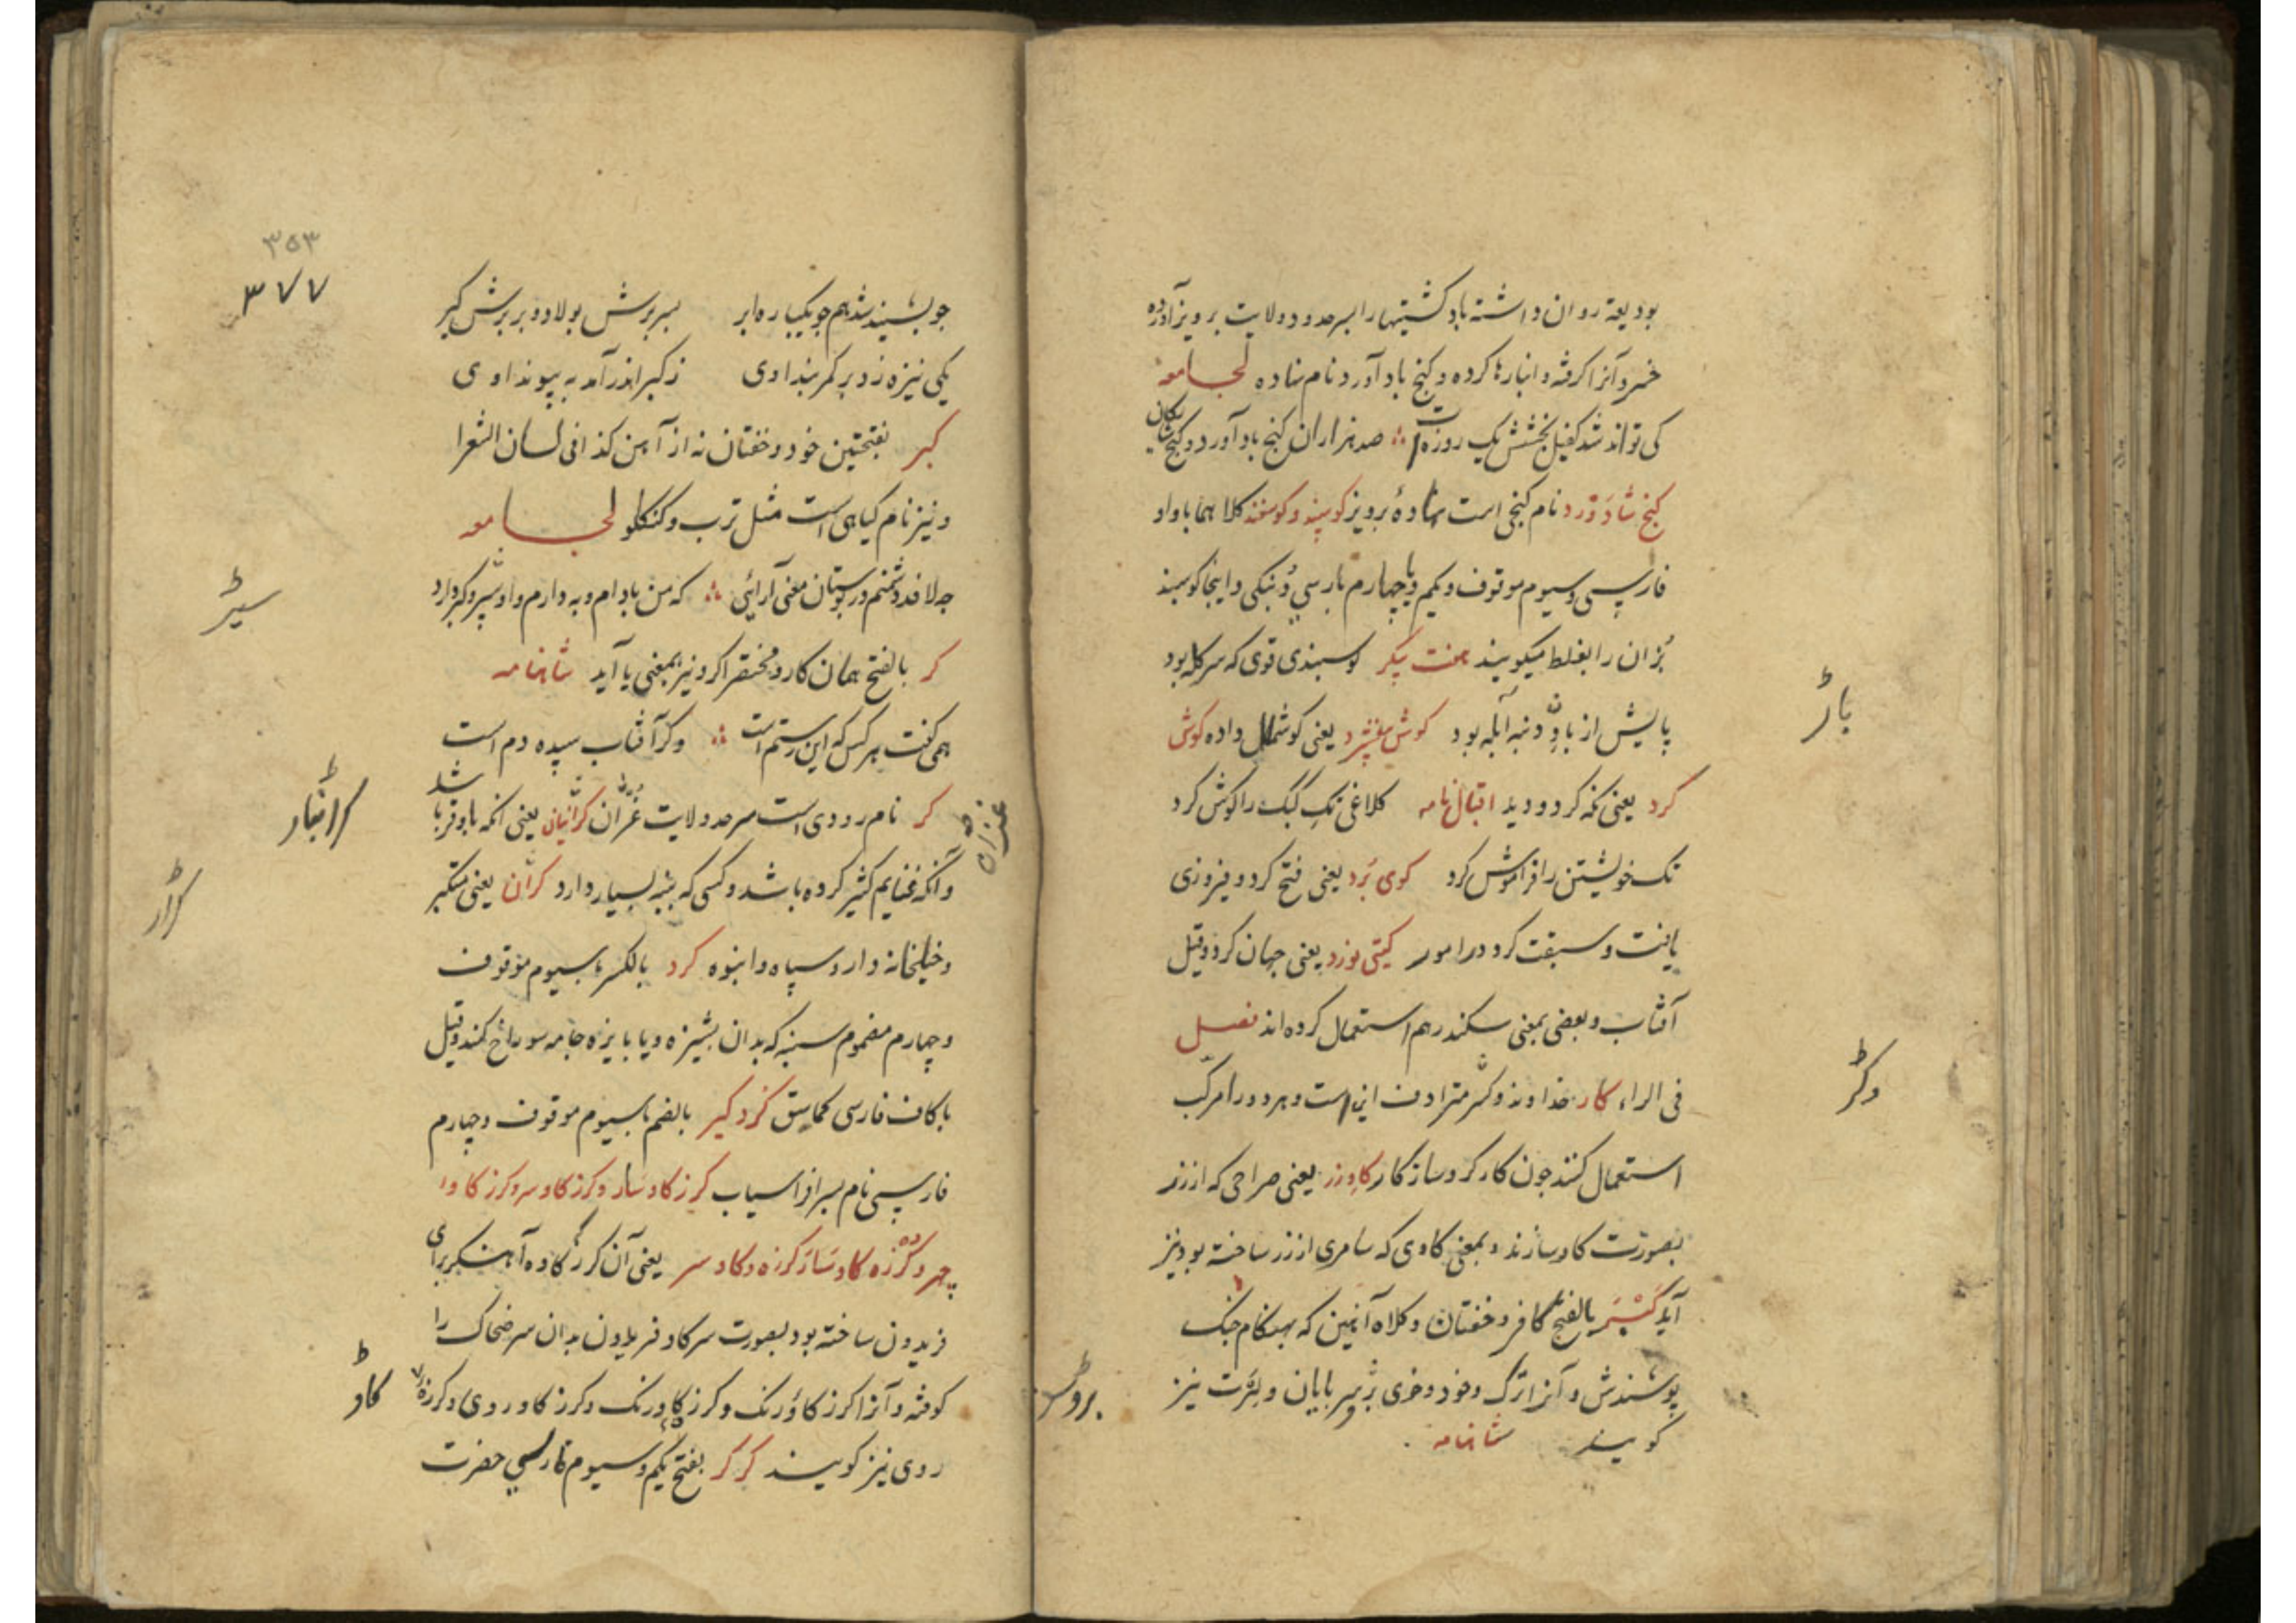 بودیعة روان داشته باد کشتیها را بسرحدود ولایت پرویز آورده
خسرو آنرا کرفته و انبارها کرده و کنج باد آورد نام نهاده لجامعه
کی تواند شد کفیل بخشش یک روزه‌ات صد هزاران کنج باد آورد و کنج شایکان
کنج شادَورد نام کنجی است نهادهٔ پرویز کوسپند و کوسفند کلاهما با واو
فارسی و سیوم موقوف و یکم و با چهارم پارسی دُنبکی و اینجا کوسپند
بُزان را بغلط میکویند هفت پیکر کوسبندی قوی که سرکله بود
پایش از باد و دنبه آبله بود کوش مفشرد یعنی کوشمال داده کوش
کرد یعنی نکه کرد و دید اقبال نامه کلاغی تک کبک را کوش کرد
تک خویشتن را فراموش کرد کوی بُرد یعنی فتح کرد و فیروزی
یافت و سبقت کرد در امور کیتی نورد یعنی جهان کرد و قیل
آفتاب و بعضی بمعنی سکندر هم استعمال کرده اند فصل
فی الراء کار خداوند و کر مترادف این است و هر دو را مرکب
استعمال کنند چون کارکر و سازکار کاو زر یعنی صراحی که از زر
بصورت کاو سازند و بمعنی کاوی که سامری از زر ساخته بود نیز
آید کبر بالفتح کافر و خفتان و کلاه آهنین که بهنکام جنک
پوشندش و آنرا ترک و خود و خوی بر سر پایان و بترت نیز
کویند شاهنامه
باڑ
وکڑ
بروٹ
۳۵۳
۳۷۷
جو بشنید شد هم جو یکباره ابر بسر برش پولاد و بر برش کبر
یکی نیزه زد بر کمربند اوی ز کبر اندر آمد به پیوند اوی
کبر بفتحتین خود و خفتان نه از آهن کذا فی لسان الشعرا
و نیز نام کیاهی است مثل ترب و کنکلو لجامعه
چه لافد دشمنم در بوستان معنی آرائی که من بادام و به دارم و او سیر و کبر دارد
کر بالفتح همان کار و مختصر اکر و نیز بمعنی یا آید شاهنامه
همی کفت هر کس که این رستم است و کر آفتاب سپیده دم است
کر نام رودی است سرحد ولایت غُزّان کرانبار یعنی انکه با وقر باشد
و آنکه غنایم کثیر کرده باشد و کسی که بنه بسیار دارد کران یعنی متکبر
و خیلخانه دار و سپاه و انبوه کرد بالکسر با سیوم موقوف
و چهارم مضموم سنبه که بدان بشیزه و یا پایزه جامه سوراخ کنند و قیل
با کاف فارسی کما سبق کرد کیر بالضم با سیوم موقوف و چهارم
فارسی نام پسر افراسیاب کرز کاو سار و کرز کاو سر و کرز کاو
چهر و کرزه کاو سار و کرزه کاو سر یعنی آن کرز که کاوه آهنکر برای
فریدون ساخته بود بصورت سر کاو فریدون بدان سر ضحاک را
کوفته و آنرا کرز کاو رنک و کرز کاو رنک و کرز کاو روی و کرزه
روی نیز کویند کر کر بفتح یکم و سیوم فارسی حضرت
سیڑ
کرانبار
کاو